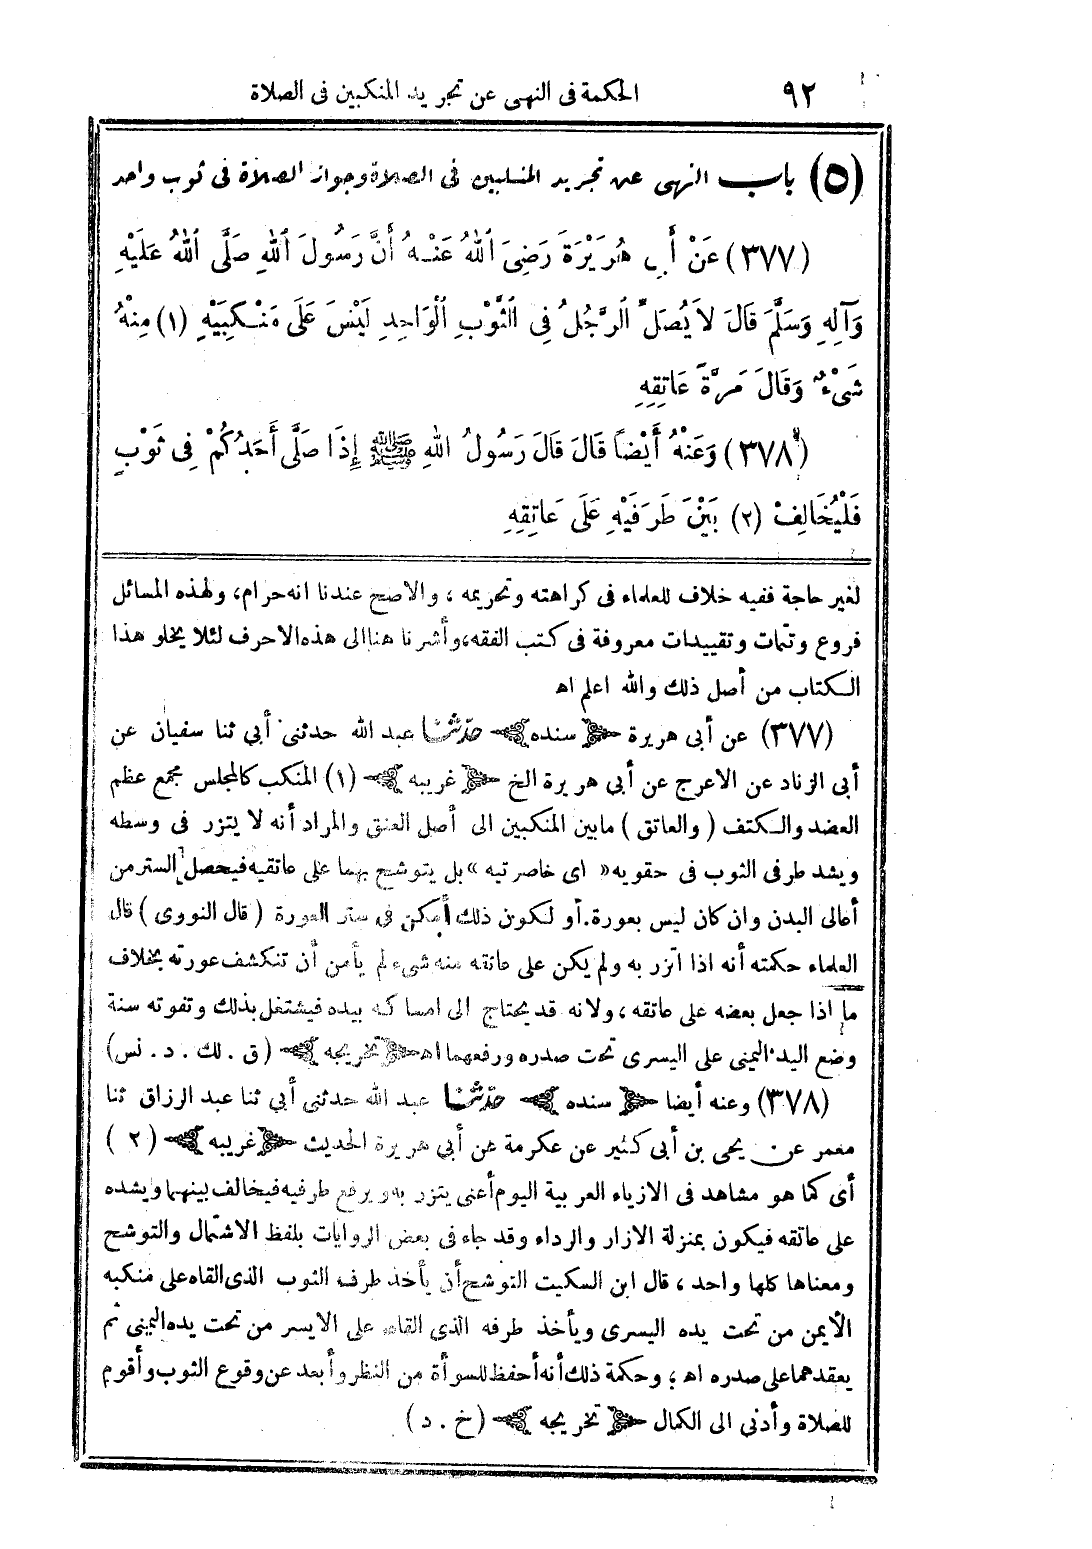 ٩٢ الحكمة فى النهى عن تجريد المنكبين فى الصلاة
(٥) باب النهى عن تجريد المنكبين فى الصلاة وجواز الصلاة فى ثوب واحد
(٣٧٧) عَنْ أَبِى هُرَيْرَةَ رَضِىَ اللهُ عَنْهُ أَنَّ رَسُولَ اللهِ صَلَّى اللهُ عَلَيْهِ
وَآلِهِ وَسَلَّمَ قَالَ لاَ يُصَلِّ الرَّجُلُ فِى الثَّوْبِ الْوَاحِدِ لَيْسَ عَلَى مَنْكِبَيْهِ (١) مِنْهُ
شَىْءٌ وَقَالَ مَرَّةً عَاتِقِهِ
(٣٧٨) وَعَنْهُ أَيْضاً قَالَ قَالَ رَسُولُ اللهِ ﷺ إِذَا صَلَّى أَحَدُكُمْ فِى ثَوْبٍ
فَلْيُخَالِفْ (٢) بَيْنَ طَرَفَيْهِ عَلَى عَاتِقِهِ
لغير حاجة ففيه خلاف للعلماء فى كراهته وتحريمه ، والاصح عندنا انه حرام، ولهذه المسائل
فروع وتتمات وتقييدات معروفة فى كتب الفقه،وأشرنا هنا الى هذه الاحرف لئلا يخلو هذا
الكتاب من أصل ذلك والله اعلم اه
(٣٧٧) عن أبى هريرة ﴿ سنده ﴾ حدّثنا عبد الله حدثنى أبي ثنا سفيان عن
أبى الزناد عن الاعرج عن أبي هريرة الخ ﴿ غريبه ﴾ (١) المنكب كالمجلس مجمع عظم
العضد والكتف ( والعاتق ) مابين المنكبين الى أصل العنق والمراد أنه لا يتزر فى وسطه
ويشد طرفى الثوب فى حقويه « اى خاصرتيه » بل يتوشح بهما على عاتقيه فيحصل الستر من
أعالى البدن وان كان ليس بعورة.أو لكون ذلك أمكن فى ستر العورة ( قال النووى ) قال
العلماء حكمته أنه اذا اتزر به ولم يكن على عاتقه منه شىء لم يأمن أن تنكشف عورته بخلاف
ما اذا جعل بعضه على عاتقه ، ولانه قد يحتاج الى امساكه بيده فيشتغل بذلك وتفوته سنة
وضع اليد اليمنى على اليسرى تحت صدره ورفعهما اه ﴿ تخريجه ﴾ (ق . لك . د . نس)
(٣٧٨) وعنه أيضا ﴿ سنده ﴾ حدّثنا عبد الله حدثنى أبي ثنا عبد الرزاق ثنا
معمر عن يحيى بن أبى كثير عن عكرمة عن أبي هريرة الحديث ﴿ غريبه ﴾ (٢)
أى كما هو مشاهد فى الازياء العربية اليوم أعنى يتزر به ويرفع طرفيه فيخالف بينهما ويشده
على عاتقه فيكون بمنزلة الازار والرداء وقد جاء فى بعض الروايات بلفظ الاشتمال والتوشح
ومعناها كلها واحد ، قال ابن السكيت التوشح أن يأخذ طرف الثوب الذى القاه على منكبه
الأيمن من تحت يده اليسرى ويأخذ طرفه الذى القاه على الايسر من تحت يده اليمنى ثم
يعقدهما على صدره اه ؛ وحكمة ذلك أنه أحفظ للسوأة من النظر وأبعد عن وقوع الثوب وأقوم
للصلاة وأدنى الى الكمال ﴿ تخريجه ﴾ (خ . د)